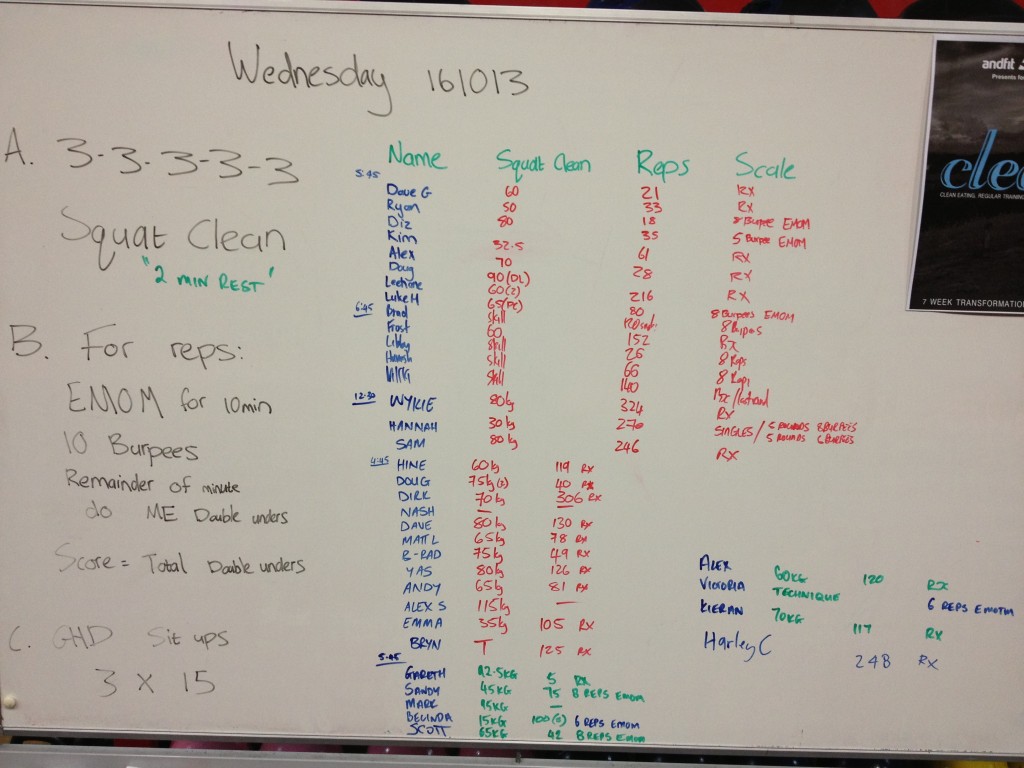 Wednesday 161013
A. 3-3-3-3-3
Squat Clean
"2 MIN REST"
B. For reps:
EMOM for 10min
10 Burpees
Remainder of minute
do ME Double unders
Score = Total Double unders
C. GHD Sit ups
3 X 15
Name Squat Clean Reps Scale
5:45
Dave G 60 21 Rx
Ryan 50 33 Rx
Diz 80 18 8 Burpee EMOM
Kim 32.5 35 5 Burpee EMOM
Alex 70 61 Rx
Doug 90(DL) 28 Rx
60(2) 216 Rx
Luke H 65(PC) 80 8 Burpees EMOM
6:45
Brad Skill 8 Burpees
Frost 60 152 Rx
Libby Skill 26 8 Reps
Skill 66 8 Reps
Skill 140
12:30
WYLIE 80kg 324 Rx
HANNAH 30kg 270 SINGLES / 5 ROUNDS 8 BURPEES
5 ROUNDS 6 BURPEES
SAM 80kg 246 RX
4:45
HINE 60kg 119 RX
DOUG 75kg(2) 40 RX
DIRK 70kg 306 RX
NASH —
DAVE 80kg 130 RX
MATT L 65kg 78 RX
B-RAD 75kg 49 RX
YAS 80kg 126 RX
ANDY 65kg 81 RX
ALEX S 115kg —
EMMA 35kg 105 RX
BRYN T 125 RX
5:45
GARETH 92.5KG 5 RX
SANDY 45KG 75 8 REPS EMOM
MARK 95KG —
BELINDA 15KG 100(S) 6 REPS EMOM
SCOTT 65KG 42 8 REPS EMOM
ALEX 60KG 120 RX
VICTORIA TECHNIQUE 6 REPS EMOTM
KIERAN 70KG 117 RX
Harley C 248 RX
andfit
Presents
clea
CLEAN EATING. REGULAR TRAINING
7 WEEK TRANSFORMATIO